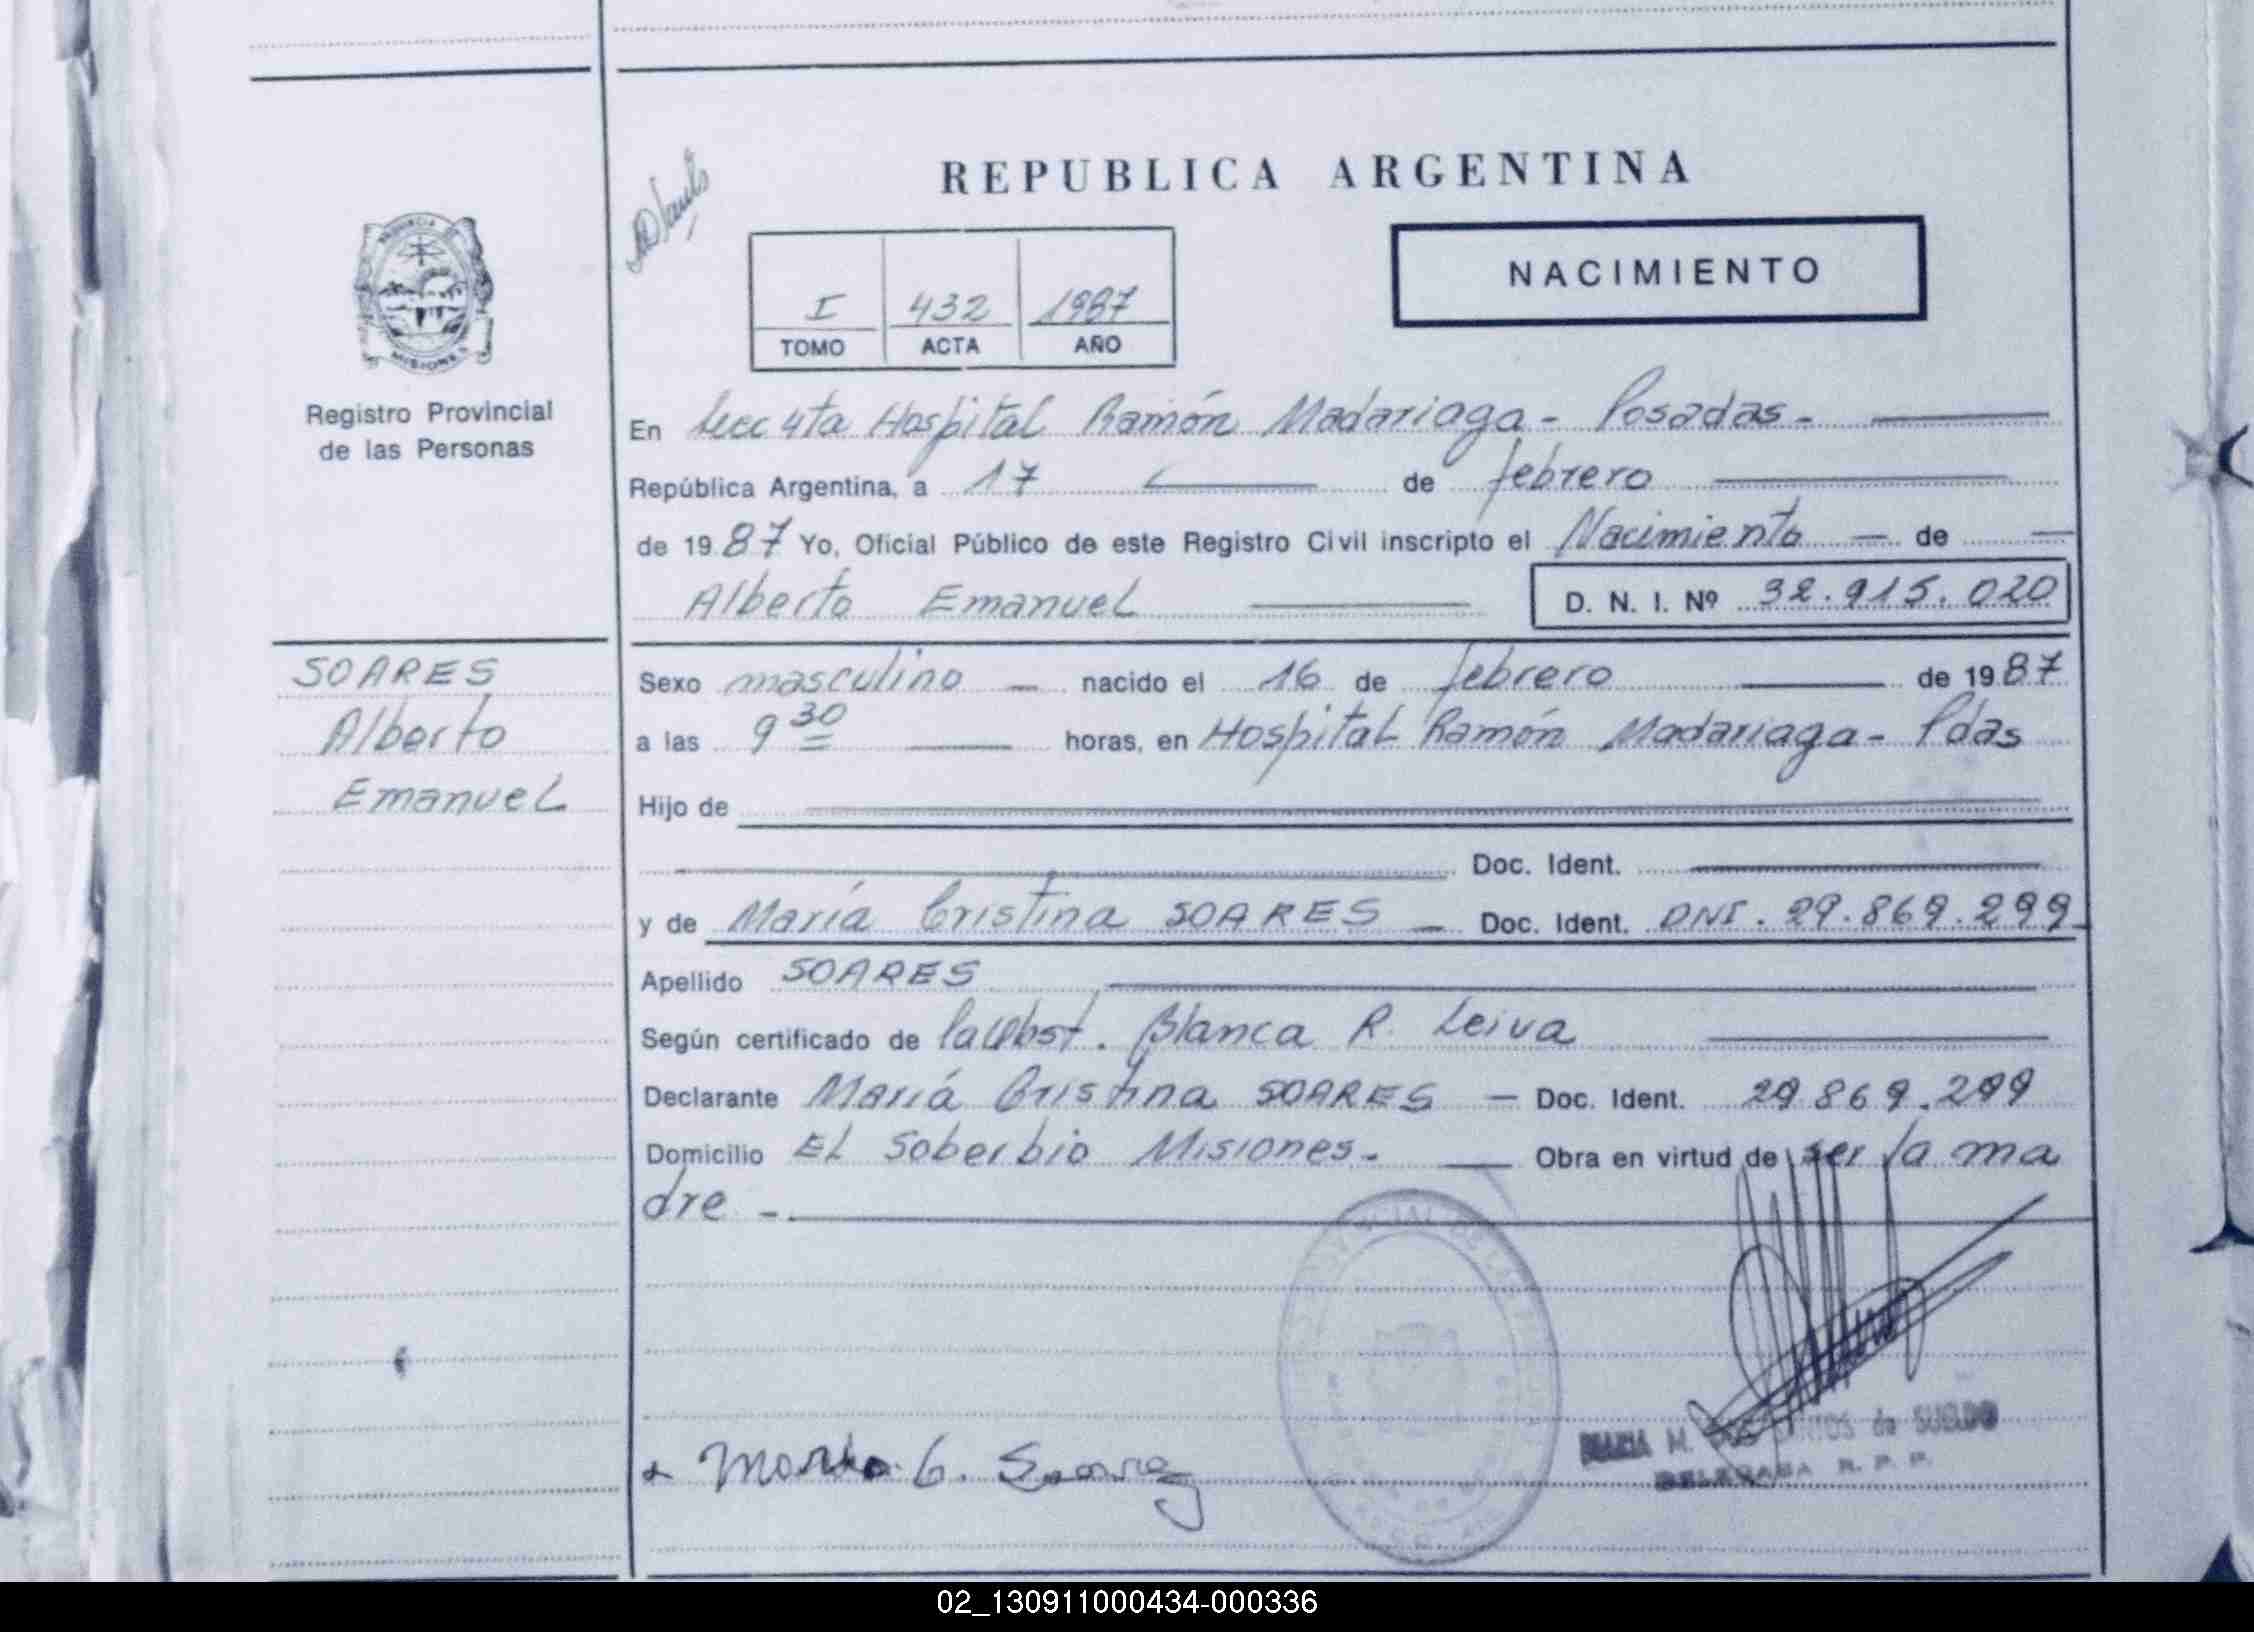 REPUBLICA ARGENTINA
NACIMIENTO
I 432 1987
TOMO ACTA AÑO
PROVINCIA DE MISIONES
Registro Provincial
de las Personas
En Secc 4ta Hospital Ramón Madariaga - Posadas -
República Argentina, a 17 de febrero
de 1987 Yo, Oficial Público de este Registro Civil inscripto el Nacimiento - de -
Alberto Emanuel D. N. I. Nº 32.915.020
SOARES
Alberto
Emanuel
Sexo masculino - nacido el 16 de febrero de 1987
a las 9 30 horas, en Hospital Ramón Madariaga - Pdas
Hijo de
Doc. Ident.
y de María Cristina SOARES - Doc. Ident. DNI. 29.869.299
Apellido SOARES
Según certificado de Blanca R. Leiva
Declarante María Cristina SOARES - Doc. Ident. 29.869.299
Domicilio El Soberbio Misiones. - Obra en virtud de ser la ma
dre -
MARIA M. de SUELDO
DELEGADA R. P. P.
02_130911000434-000336